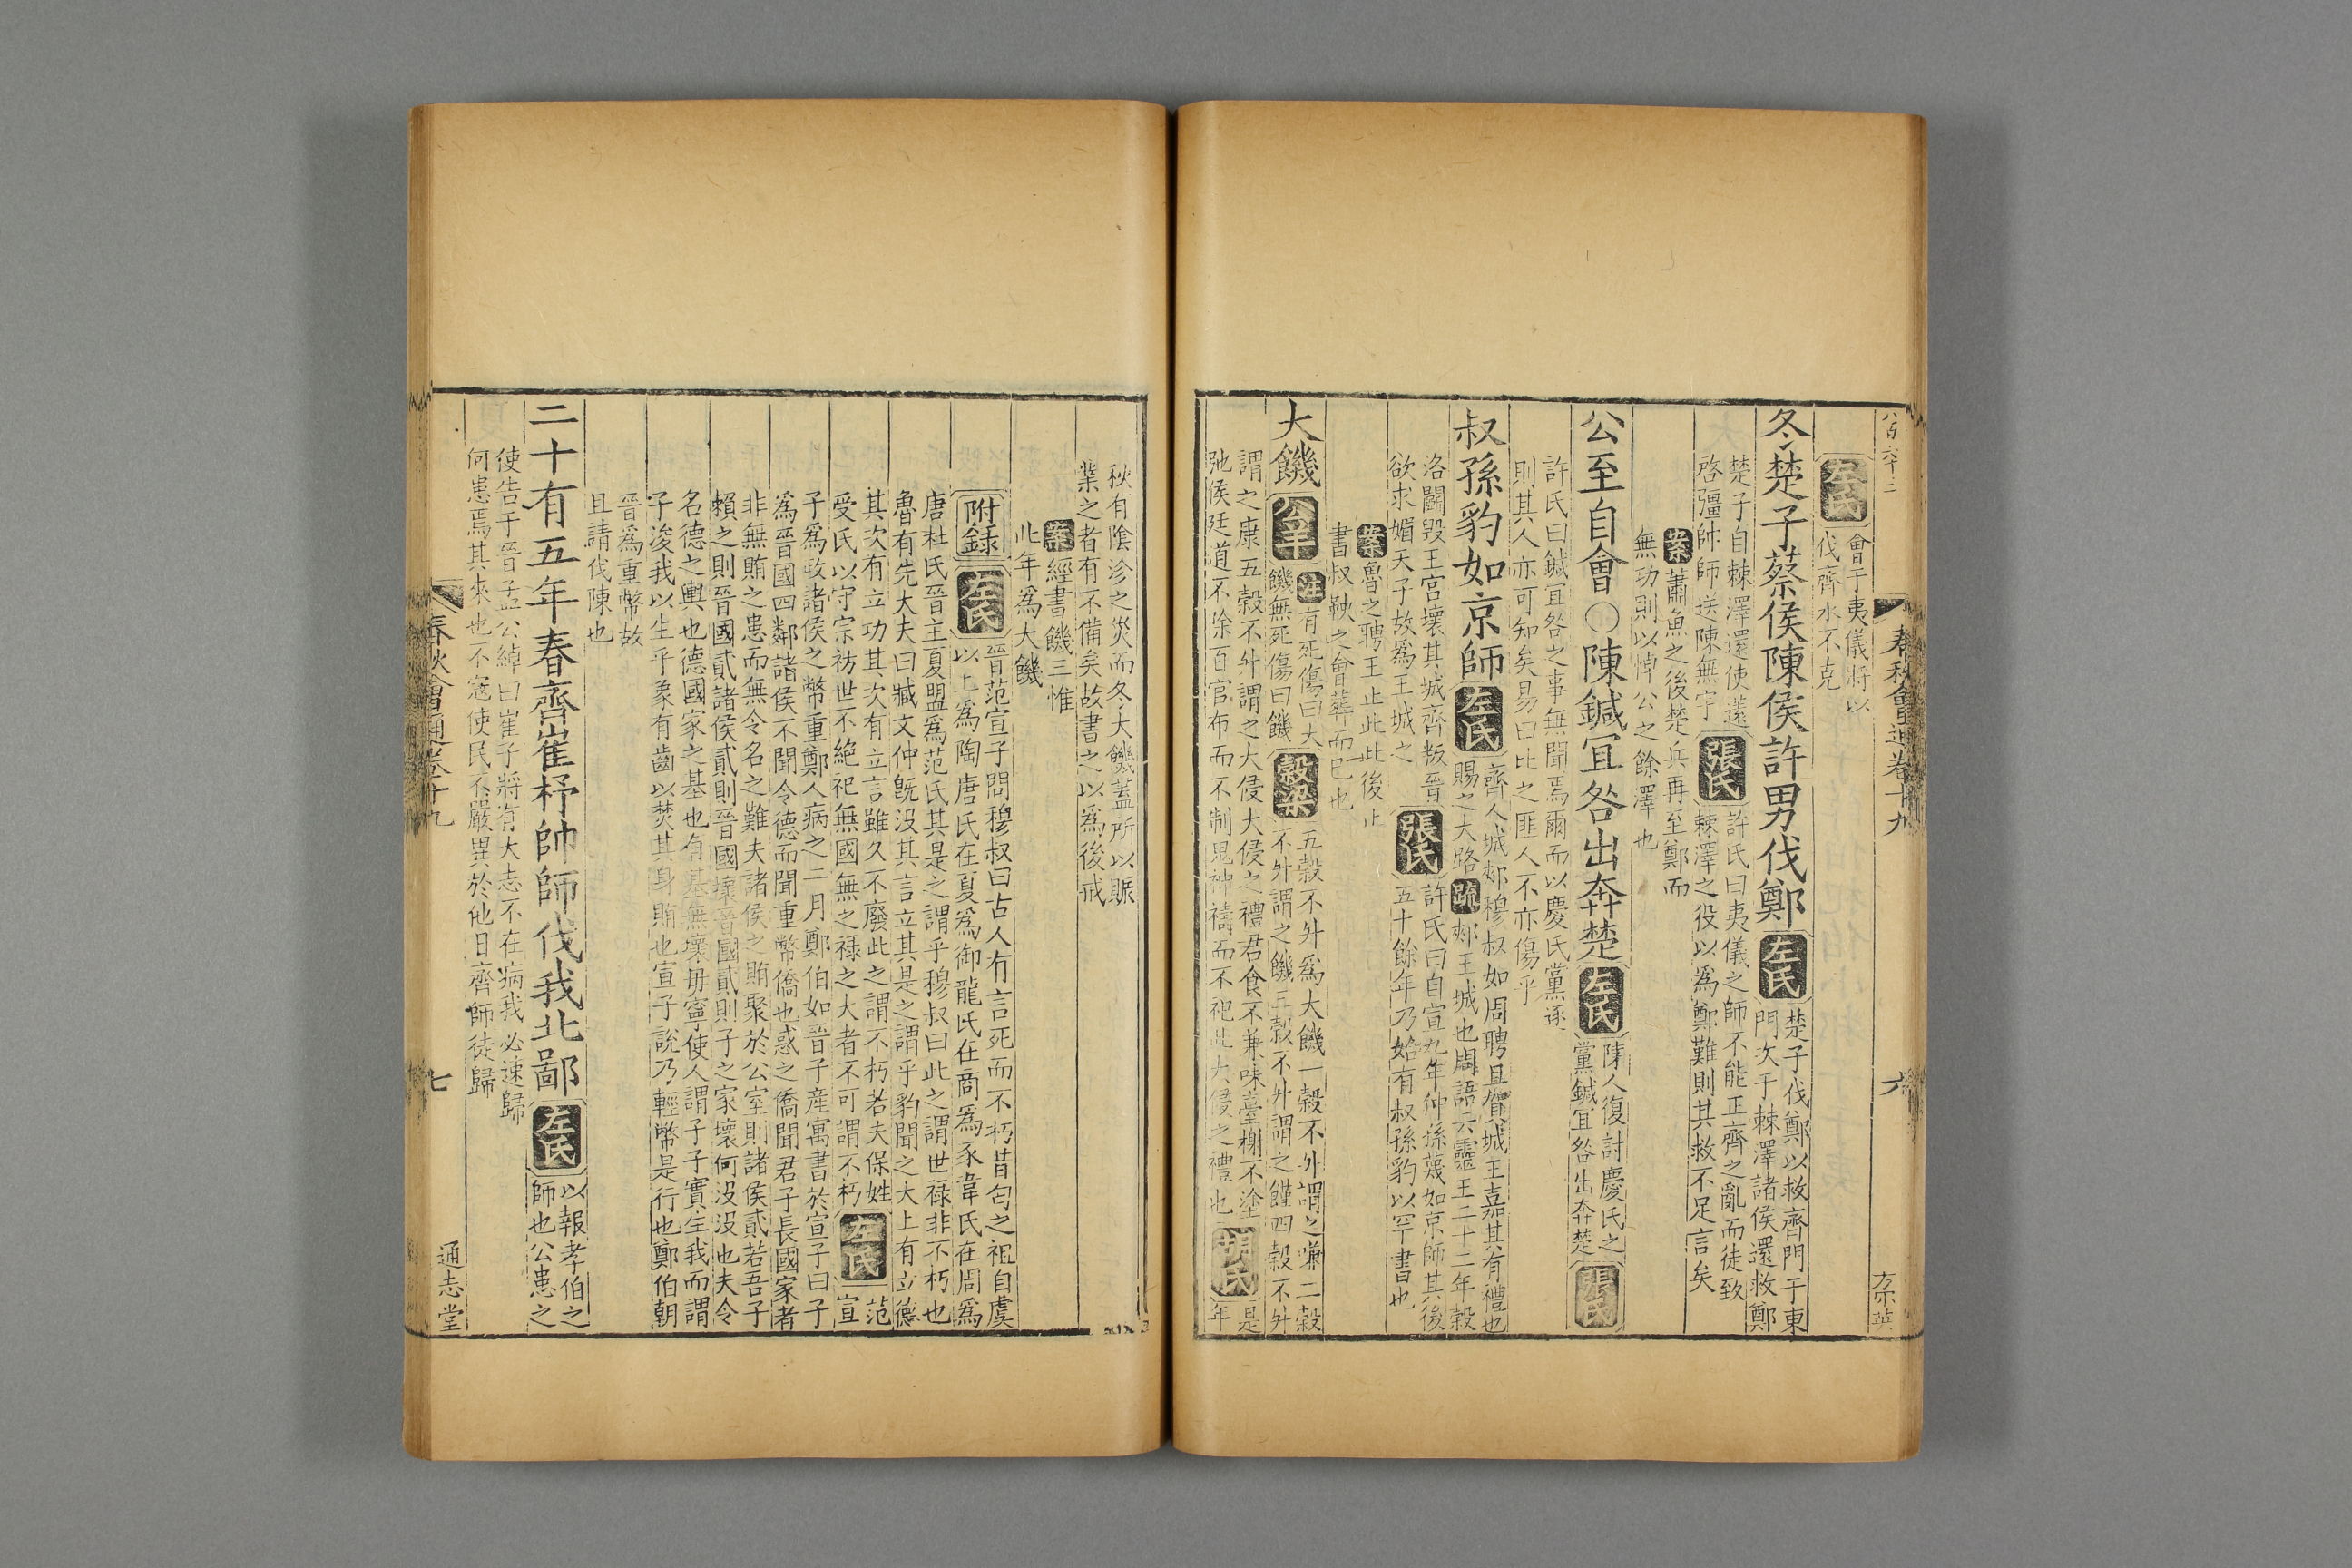 八百六十二
春秋會通卷十九
六
左氏 會于夷儀將以
伐齊水不克
冬楚子蔡侯陳侯許男伐鄭 左氏 楚子伐鄭以救齊門于東
門次于棘澤諸侯還救鄭
楚子自棘澤還使薳
啓彊帥師送陳無宇 張氏 許氏曰夷儀之師不能正齊之亂而徒致
棘澤之役以爲鄭難則其救不足言矣
案 蕭魚之後楚兵再至鄭而
無功則以悼公之餘澤也
公至自會○陳鍼宜咎出奔楚 左氏 陳人復討慶氏之
黨鍼宜咎出奔楚 張氏
許氏曰鍼宜咎之事無聞焉爾而以慶氏黨逐
則其人亦可知矣易曰比之匪人不亦傷乎
叔孫豹如京師 左氏 齊人城郟穆叔如周聘且賀城王嘉其有禮也
賜之大路 疏 郟王城也周語云靈王二十二年穀
洛鬬毀王宮壞其城齊叛晉
欲求媚天子故爲王城之 張氏 許氏曰自宣九年仲孫蔑如京師其後
五十餘年乃始有叔孫豹以罕書也
案 魯之聘王止此此後止
書叔鞅之會葬而已也
大饑 公羊 注 有死傷曰大
饑無死傷曰饑 穀梁 五穀不升爲大饑一穀不升謂之嗛二穀
不升謂之饑三穀不升謂之饉四穀不升
謂之康五穀不升謂之大侵大侵之禮君食不兼味臺榭不塗
弛侯廷道不除百官布而不制鬼神禱而不祀此大侵之禮也 胡氏 是
年
秋有陰沴之災而冬大饑蓋所以賑
業之者有不備矣故書之以爲後戒
案 經書饑三惟
此年爲大饑
附錄 左氏 晉范宣子問穆叔曰古人有言死而不朽昔匄之祖自虞
以上爲陶唐氏在夏爲御龍氏在商爲豕韋氏在周爲
唐杜氏晉主夏盟爲范氏其是之謂乎穆叔曰此之謂世禄非不朽也
魯有先大夫曰臧文仲旣沒其言立其是之謂乎豹聞之大上有立德
其次有立功其次有立言雖久不廢此之謂不朽若夫保姓
受氏以守宗祊世不絶祀無國無之禄之大者不可謂不朽 左氏 范
宣
子爲政諸侯之幣重鄭人病之二月鄭伯如晉子產寓書於宣子曰子
爲晉國四鄰諸侯不聞令德而聞重幣僑也惑之僑聞君子長國家者
非無賄之患而無令名之難夫諸侯之賄聚於公室則諸侯貳若吾子
賴之則晉國貳諸侯貳則晉國壞晉國貳則子之家壞何沒沒也夫令
名德之輿也德國家之基也有基無壞毋寧使人謂子子實生我而謂
子浚我以生乎象有齒以焚其身賄也宣子說乃輕幣是行也鄭伯朝
晉爲重幣故
且請伐陳也
二十有五年春齊崔杼帥師伐我北鄙 左氏 以報孝伯之
師也公患之
使告于晉孟公綽曰崔子將有大志不在病我必速歸
何患焉其來也不寇使民不嚴異於他日齊師徒歸
春秋會通卷十九
七
通志堂